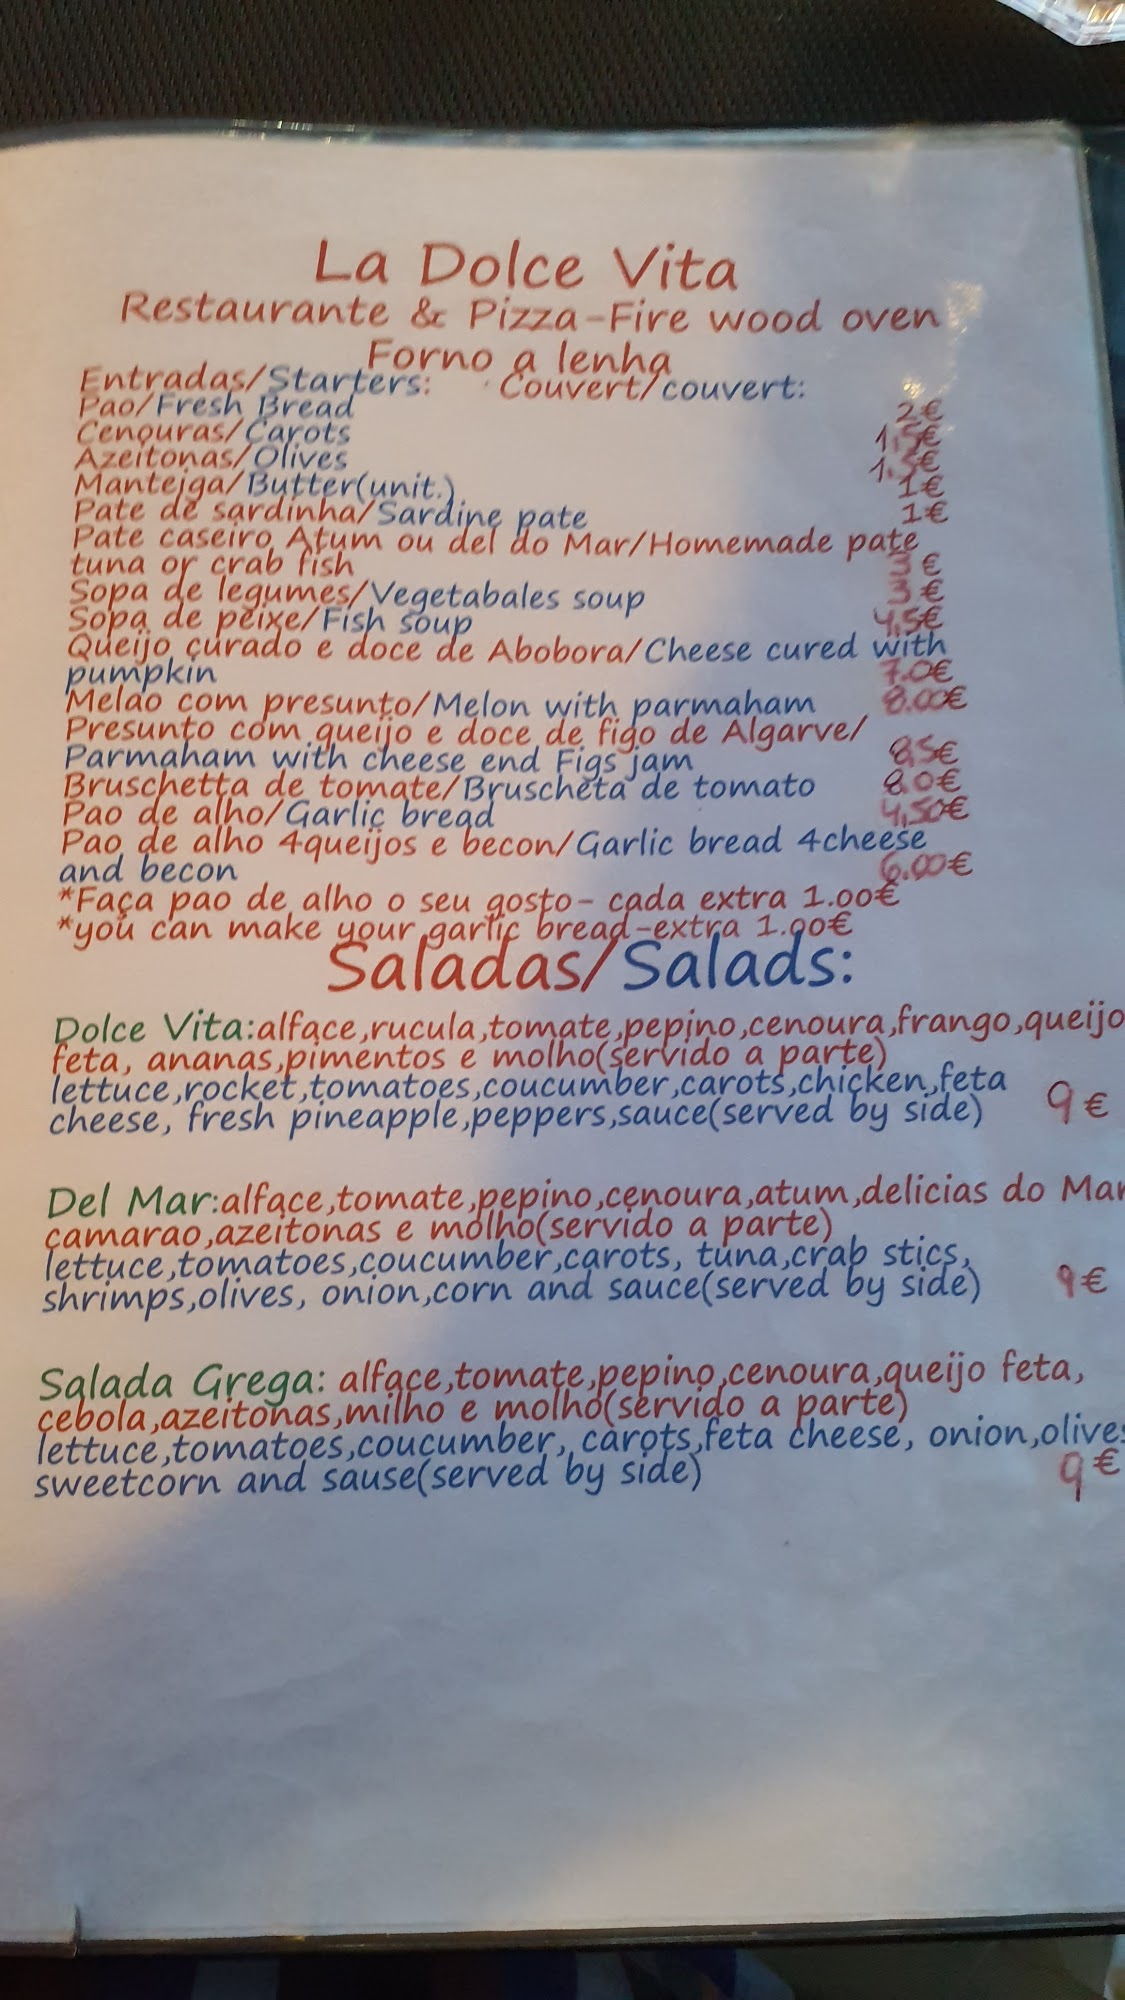 La Dolce Vita
Restaurante & Pizza-Fire wood oven
Forno a lenha
Entradas/Starters: Couvert/couvert:
Pao/Fresh Bread 2€
Cenouras/Carots 1,5€
Azeitonas/Olives 1.5€
Manteiga/Butter(unit.) 1€
Pate de sardinha/Sardine pate 1€
Pate caseiro Atum ou del do Mar/Homemade pate
tuna or crab fish 3€
Sopa de legumes/Vegetabales soup 3€
Sopa de peixe/Fish soup 4,5€
Queijo curado e doce de Abobora/Cheese cured with
pumpkin 7.0€
Melao com presunto/Melon with parmaham 8.00€
Presunto com queijo e doce de figo de Algarve/
Parmaham with cheese end Figs jam 8,5€
Bruschetta de tomate/Bruscheta de tomato 8.0€
Pao de alho/Garlic bread 4,50€
Pao de alho 4queijos e becon/Garlic bread 4cheese
and becon 6.00€
*Faça pao de alho o seu gosto- cada extra 1.00€
*you can make your garlic bread-extra 1.00€
Saladas/Salads:
Dolce Vita:alface,rucula,tomate,pepino,cenoura,frango,queijo
feta, ananas,pimentos e molho(servido a parte)
lettuce,rocket,tomatoes,coucumber,carots,chicken,feta
cheese, fresh pineapple,peppers,sauce(served by side) 9€
Del Mar:alface,tomate,pepino,cenoura,atum,delicias do Mar
camarao,azeitonas e molho(servido a parte)
lettuce,tomatoes,coucumber,carots, tuna,crab stics,
shrimps,olives, onion,corn and sauce(served by side) 9€
Salada Grega: alface,tomate,pepino,cenoura,queijo feta,
cebola,azeitonas,milho e molho(servido a parte)
lettuce,tomatoes,coucumber, carots,feta cheese, onion,olives
sweetcorn and sause(served by side) 9€